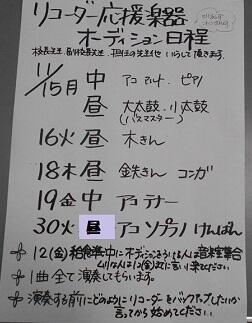 リコーダー応援楽器
オーディション日程
校長先生、副校長先生、担任の先生もいらして頂きます。
11/15月 中 アコ アルト ピアノ
昼 大太鼓・小太鼓
(バスマスター)
16火 昼 木きん
18木 昼 鉄きん コンガ
19金 中 アコ テナー
30火 昼 アコ ソプラノ けんばん
12(金)給食準備中にオディションうける人は音楽室集合
ムリな人は12(金)までに言いに来てください
1曲全て演奏してもらいます。
演奏する前にどのようにリコーダーをバックアップしたいか
言ってから始めてください